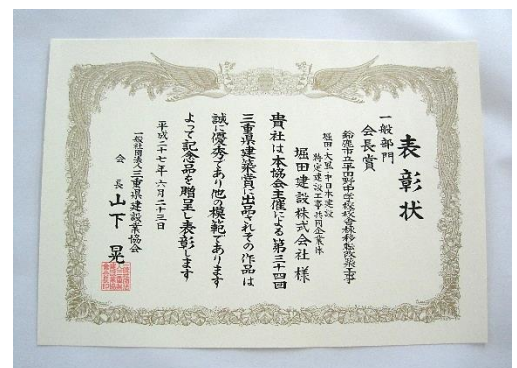 表彰状
一般部門
会長賞
鈴鹿市立平田野中学校校舎棟移転改築工事
堀田・大凪・中日本建設
特定建設工事共同企業体
堀田建設株式会社 様
貴社は本協会主催による第三十四回
三重県建築賞に出品されその作品は
誠に優秀であり他の模範であります
よって記念品を贈呈し表彰します
平成二十七年六月二十三日
一般社団法人三重県建設業協会
会長 山下 晃